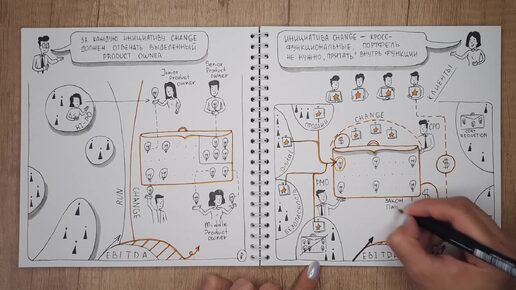 ЗА КАЖДУЮ ИНИЦИАТИВУ CHANGE
ДОЛЖЕН ОТВЕЧАТЬ ВЫДЕЛЕННЫЙ
PRODUCT OWNER
Junior
Product
owner
Senior
Product
owner
HI-PO
RUN
CHANGE
Middle
Product
owner
EBITDA
ИНИЦИАТИВА CHANGE – КРОСС-
ФУНКЦИОНАЛЬНЫЕ, ПОРТФЕЛЬ
НЕ НУЖНО „ПРЯТАТЬ" ВНУТРЬ ФУНКЦИИ
КЛИЕНТЫ
ПРОДАЖИ
CHANGE
CPO
COST
REDUCTION
PMO
ЗАКОН
EBITDA